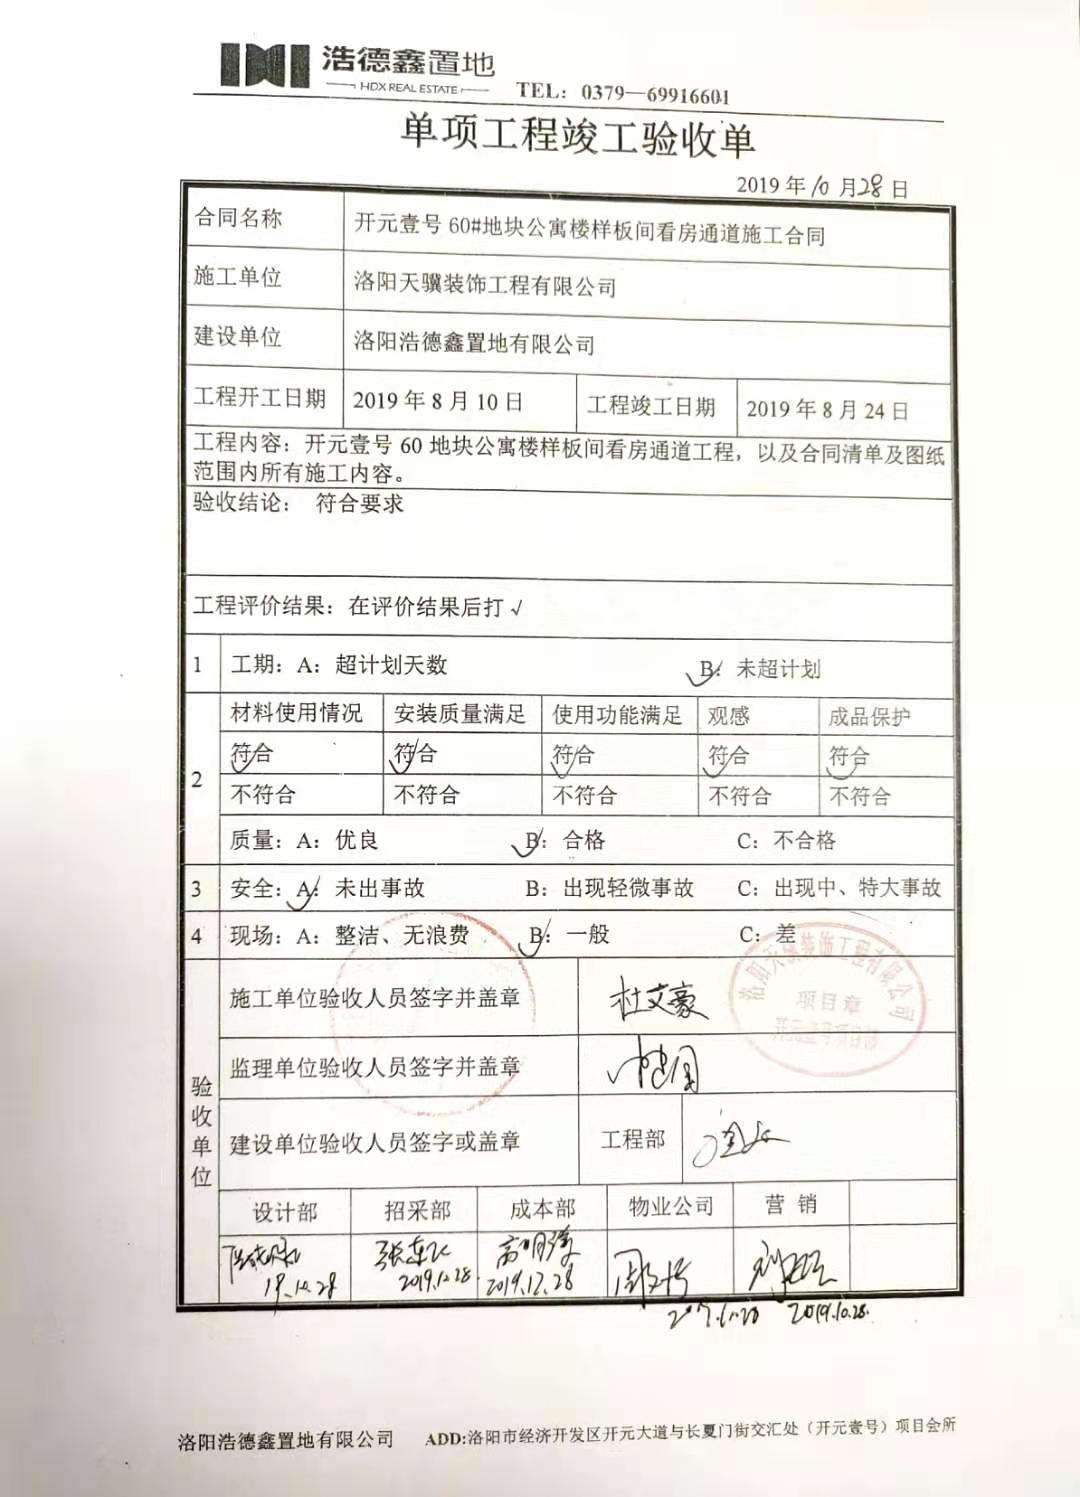 浩德鑫置地
HDX REAL ESTATE
TEL：0379—69916601
单项工程竣工验收单
2019 年 10 月 28 日
合同名称 开元壹号 60#地块公寓楼样板间看房通道施工合同
施工单位 洛阳天骥装饰工程有限公司
建设单位 洛阳浩德鑫置地有限公司
工程开工日期 2019 年 8 月 10 日 工程竣工日期 2019 年 8 月 24 日
工程内容：开元壹号 60 地块公寓楼样板间看房通道工程，以及合同清单及图纸
范围内所有施工内容。
验收结论： 符合要求
工程评价结果：在评价结果后打 √
1 工期：A：超计划天数 B：未超计划
材料使用情况 安装质量满足 使用功能满足 观感 成品保护
符合 符合 符合 符合 符合
2
不符合 不符合 不符合 不符合 不符合
质量：A：优良 B：合格 C：不合格
3 安全：A：未出事故 B：出现轻微事故 C：出现中、特大事故
4 现场：A：整洁、无浪费 B：一般 C：差
洛阳天骥装饰工程有限公司
项目章
开元壹号项目部
验收单位
施工单位验收人员签字并盖章 杜文豪
监理单位验收人员签字并盖章
建设单位验收人员签字或盖章 工程部
设计部 招采部 成本部 物业公司 营 销
19.10.28 2019.12.28 2019.12.28
2019.10.28.
洛阳浩德鑫置地有限公司 ADD:洛阳市经济开发区开元大道与长夏门街交汇处（开元壹号）项目会所